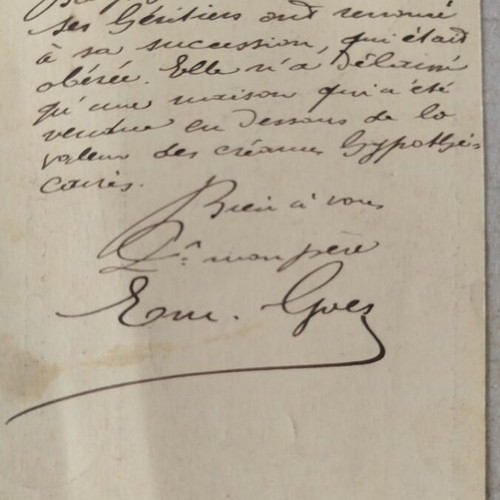 ses héritiers ont renoncé
à sa succession, qui était
obérée. Elle n'a délaissé
qu'une maison qui a été
vendue en dessous de la
valeur des créances hypothé-
caires.
Bien à vous
Pr. mon père
Em.